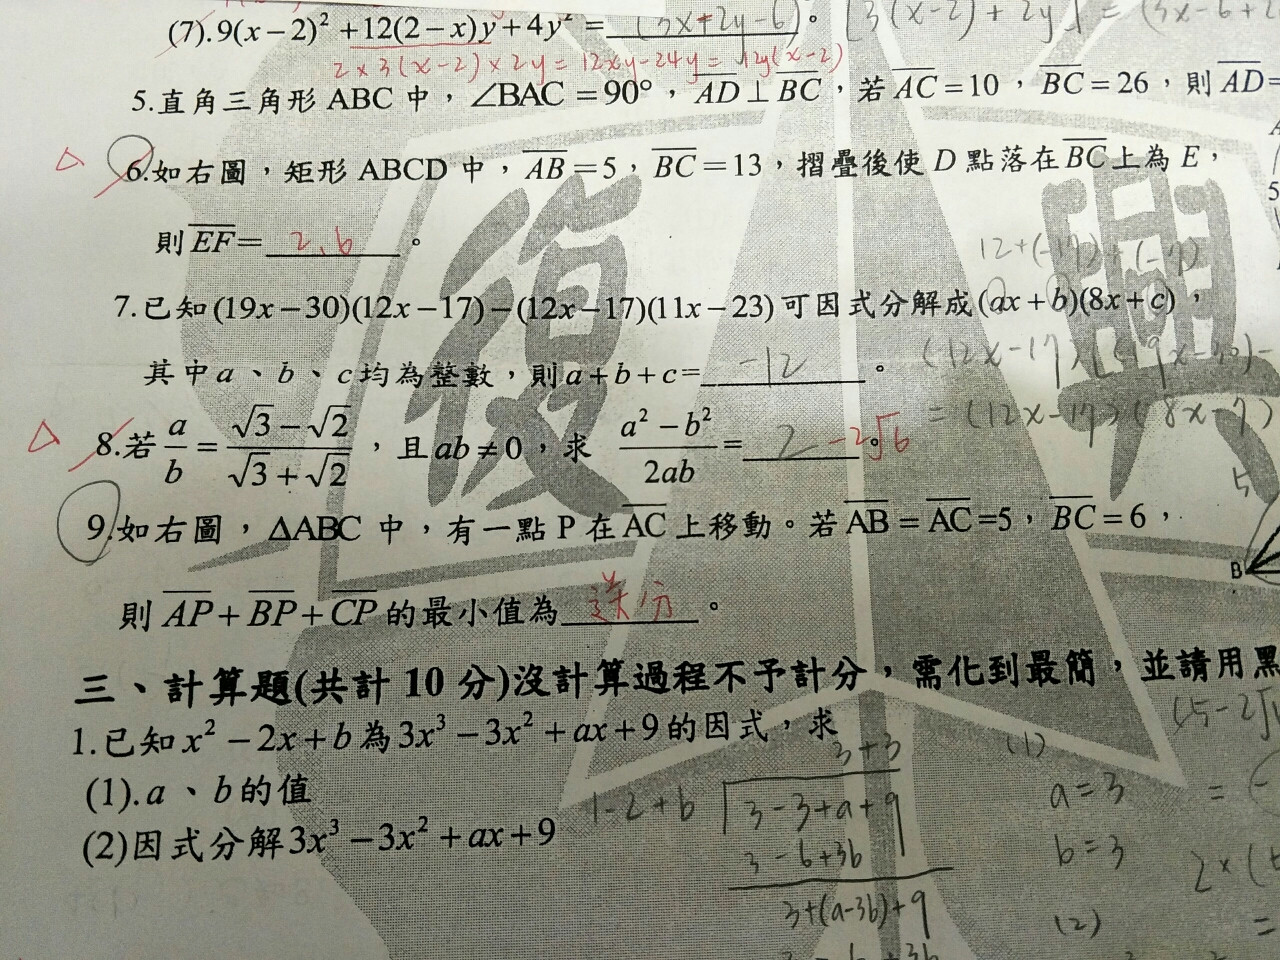 (7).9(x-2)²+12(2-x)y+4y²=(3x+2y-6)。 [3(x-2)+2y]=(3x-6+2
2×3(x-2)×2y=12xy-24y=12y(x-2)
5.直角三角形ABC中，∠BAC=90°，AD⊥BC，若AC=10，BC=26，則AD=
△ 6.如右圖，矩形ABCD中，AB=5，BC=13，摺疊後使D點落在BC上為E，
則EF=2.6。
12+(-17)+(-7)
7.已知(19x-30)(12x-17)-(12x-17)(11x-23)可因式分解成(ax+b)(8x+c)，
(12x-17)(19x-30)-
其中a、b、c均為整數，則a+b+c=-12。
=(12x-17)(8x-7)
△ 8.若a/b=(√3-√2)/(√3+√2)，且ab≠0，求(a²-b²)/2ab=2 -2√6。
5
9.如右圖，ΔABC中，有一點P在AC上移動。若AB=AC=5，BC=6，
B
則AP+BP+CP的最小值為送分。
三、計算題(共計10分)沒計算過程不予計分，需化到最簡，並請用黑
1.已知x²-2x+b為3x³-3x²+ax+9的因式，求
3+3 (1)
(1).a、b的值
1-2+b 3-3+a+9 a=3
(2)因式分解3x³-3x²+ax+9
3-6+3b b=3
3+(a-3b)+9 (2)